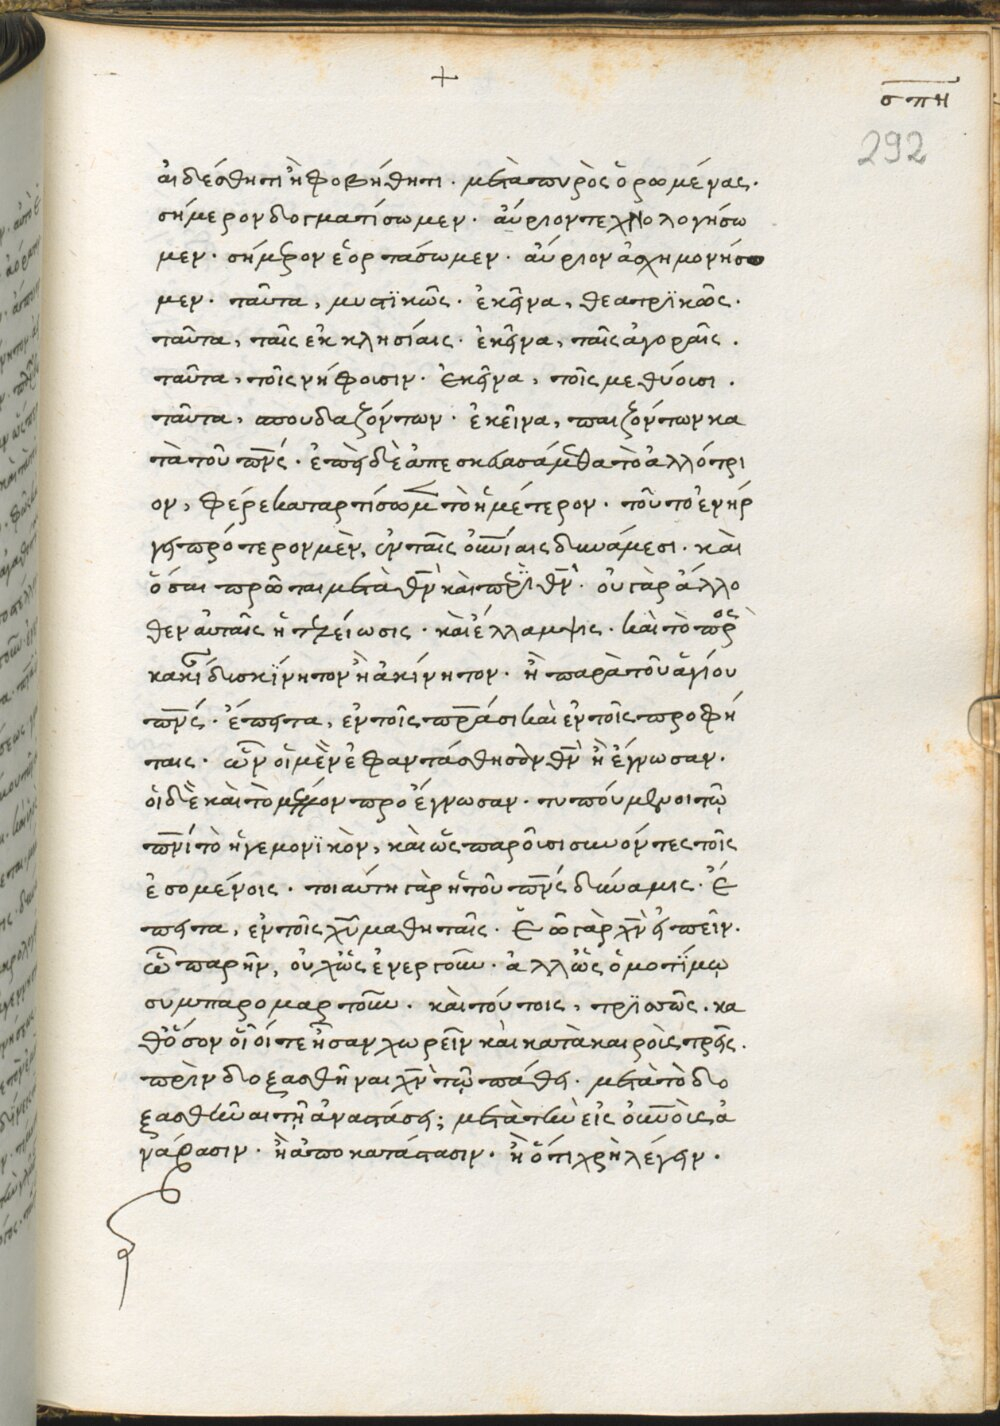 +
σπη
292
αἰδέσθητι ἢ φοβήθητι· μετὰ πυρὸς ὁρωμένας·
σήμερον δογματίσωμεν· αὔριον τεχνολογήσω
μεν· σήμερον ἑορτάσωμεν· αὔριον ἀσχημονήσω
μεν· ταῦτα, μυστϊκῶς· ἐκεῖνα, θεατρϊκῶς·
ταῦτα, ταῖς ἐκκλησίαις· ἐκεῖνα, ταῖς ἀγοραῖς·
ταῦτα, τοῖς νήφουσιν· ἐκεῖνα, τοῖς μεθύουσι·
ταῦτα, σπουδαζόντων· ἐκεῖνα, παιζόντων κα
τὰ τοῦ πνς· ἐπεὶ δὲ ἀπεσκευασάμεθα τὸ ἀλλότρι
ον, φέρε καταρτίσωμεν τὸ ἡμέτερον· τοῦτο ἐνήρ
γει πρότερον μὲν, ἐν ταῖς οὐνίαις δυνάμεσι· καὶ
ὅσαι πρῶται μετὰ θν καὶ περὶ θν· οὐ γὰρ ἄλλο
θεν αὐταῖς ἡ τελείωσις· καὶ ἔλλαμψις· καὶ τὸ πρὸς
κακίαν δυσκίνητον ἢ ἀκίνητον· ἢ παρὰ τοῦ ἁγίου
πνς· ἔπειτα, ἐν τοῖς πράσι καὶ ἐν τοῖς προφή
ταις· ὧν οἱ μὲν ἐφαντάσθησαν θν ἢ ἔγνωσαν·
οἱ δὲ καὶ τὸ μέλλον προέγνωσαν· τυπούμενοι τῷ
πνι τὸ ἡγεμονϊκὸν, καὶ ὡς παροῦσι συνόντες τοῖς
ἐσομένοις· τοιαύτη γὰρ ἡ τοῦ πνς δύναμις· Ἔ
πειτα, ἐν τοῖς χυ μαθηταῖς· Ἐῶ γὰρ χν εἰπεῖν·
ᾧ παρῆν, οὐχ ὡς ἐνεργοῦν· ἀλλ' ὡς ὁμοτίμῳ
συμπαρομαρτοῦν· καὶ τούτοις, τρϊσσῶς· κα
θ' ὅσον οἷοί τε ἦσαν χωρεῖν καὶ κατὰ καιροὺς τρεῖς·
πρὶν δοξασθῆναι χν τῷ πάθει· μετὰ τὸ δο
ξασθῆναι τῇ ἀναστάσει; μετὰ τὴν εἰς οὐνοὺς ἀ
νάβασιν· ἢ ἀποκατάστασιν· ἢ ὅ τι χρὴ λέγειν·